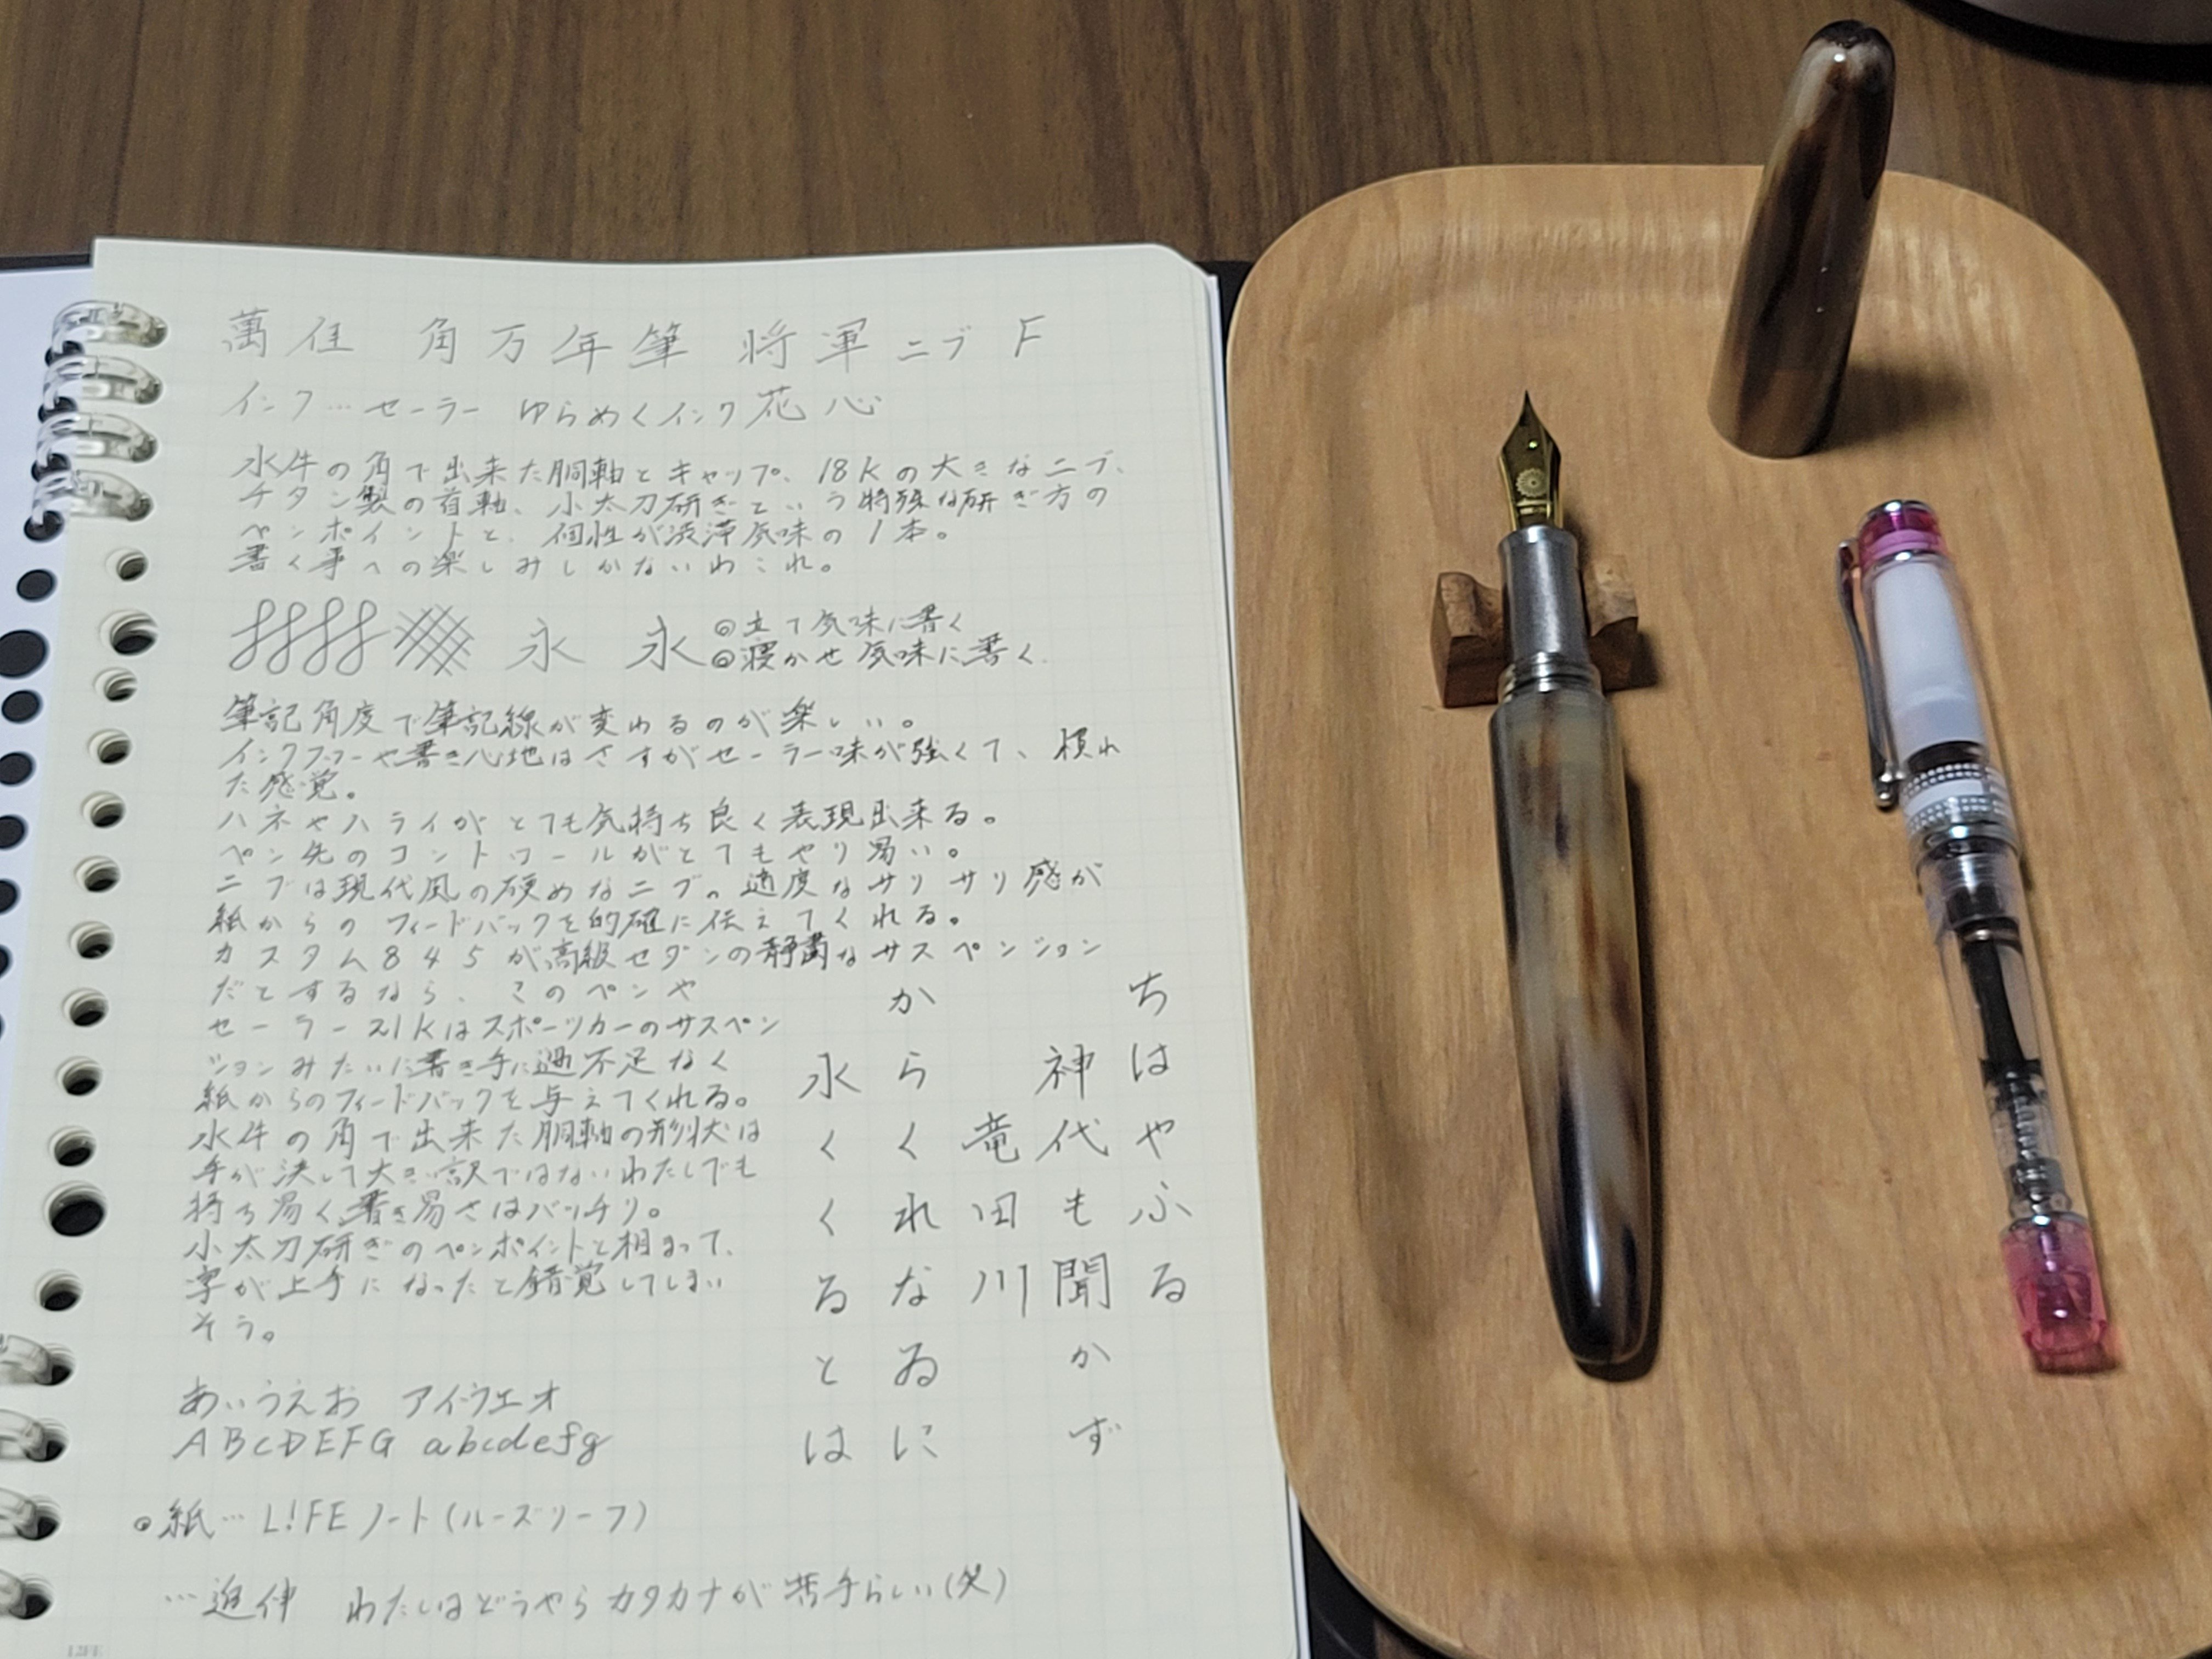 萬佳 角万年筆 将軍 ニブ F
インク…セーラー ゆらめくインク 花心
水牛の角で出来た胴軸とキャップ、18Kの大きなニブ、
チタン製の首軸、小太刀研ぎという特殊な研ぎ方の
ペンポイントと、個性が渋滞気味の1本。
書く事への楽しみしかないわこれ。
永 永
◎立て気味に書く
◎寝かせ気味に書く
筆記角度で筆記線が変わるのが楽しい。
インクフローや書き心地はさすがセーラー味が強くて、慣れ
た感覚。
ハネやハライがとても気持ち良く表現出来る。
ペン先のコントロールがとてもやり易い。
ニブは現代風の硬めなニブ。適度なサリサリ感が
紙からのフィードバックを的確に伝えてくれる。
カスタム845が高級セダンの静粛なサスペンション
だとするなら、このペンや
セーラー21Kはスポーツカーのサスペン
ションみたいに書き手に過不足なく
紙からのフィードバックを与えてくれる。
水牛の角で出来た胴軸の形状は
手が決して大きい訳ではないわたしでも
持ち易く、書き易さはバッチリ。
小太刀研ぎのペンポイントと相まって、
字が上手になったと錯覚してしまい
そう。
ちはやふる
神代も聞かず
竜田川
からくれなゐに
水くくるとは
あいうえお アイウエオ
ABCDEFG abcdefg
◎紙… L!FE ノート(ルーズリーフ)
…追伸 わたしはどうやらカタカナが苦手らしい(笑)
LIFE